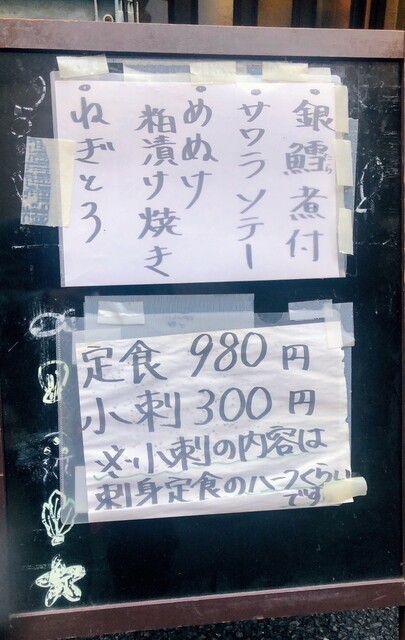 ・銀鱈煮付
たら
・サワラソテー
・めぬけ
粕漬け焼き
・ねぎとろ
定食 980円
小刺 300円
※小刺の内容は
刺身定食のハーフくらい
です